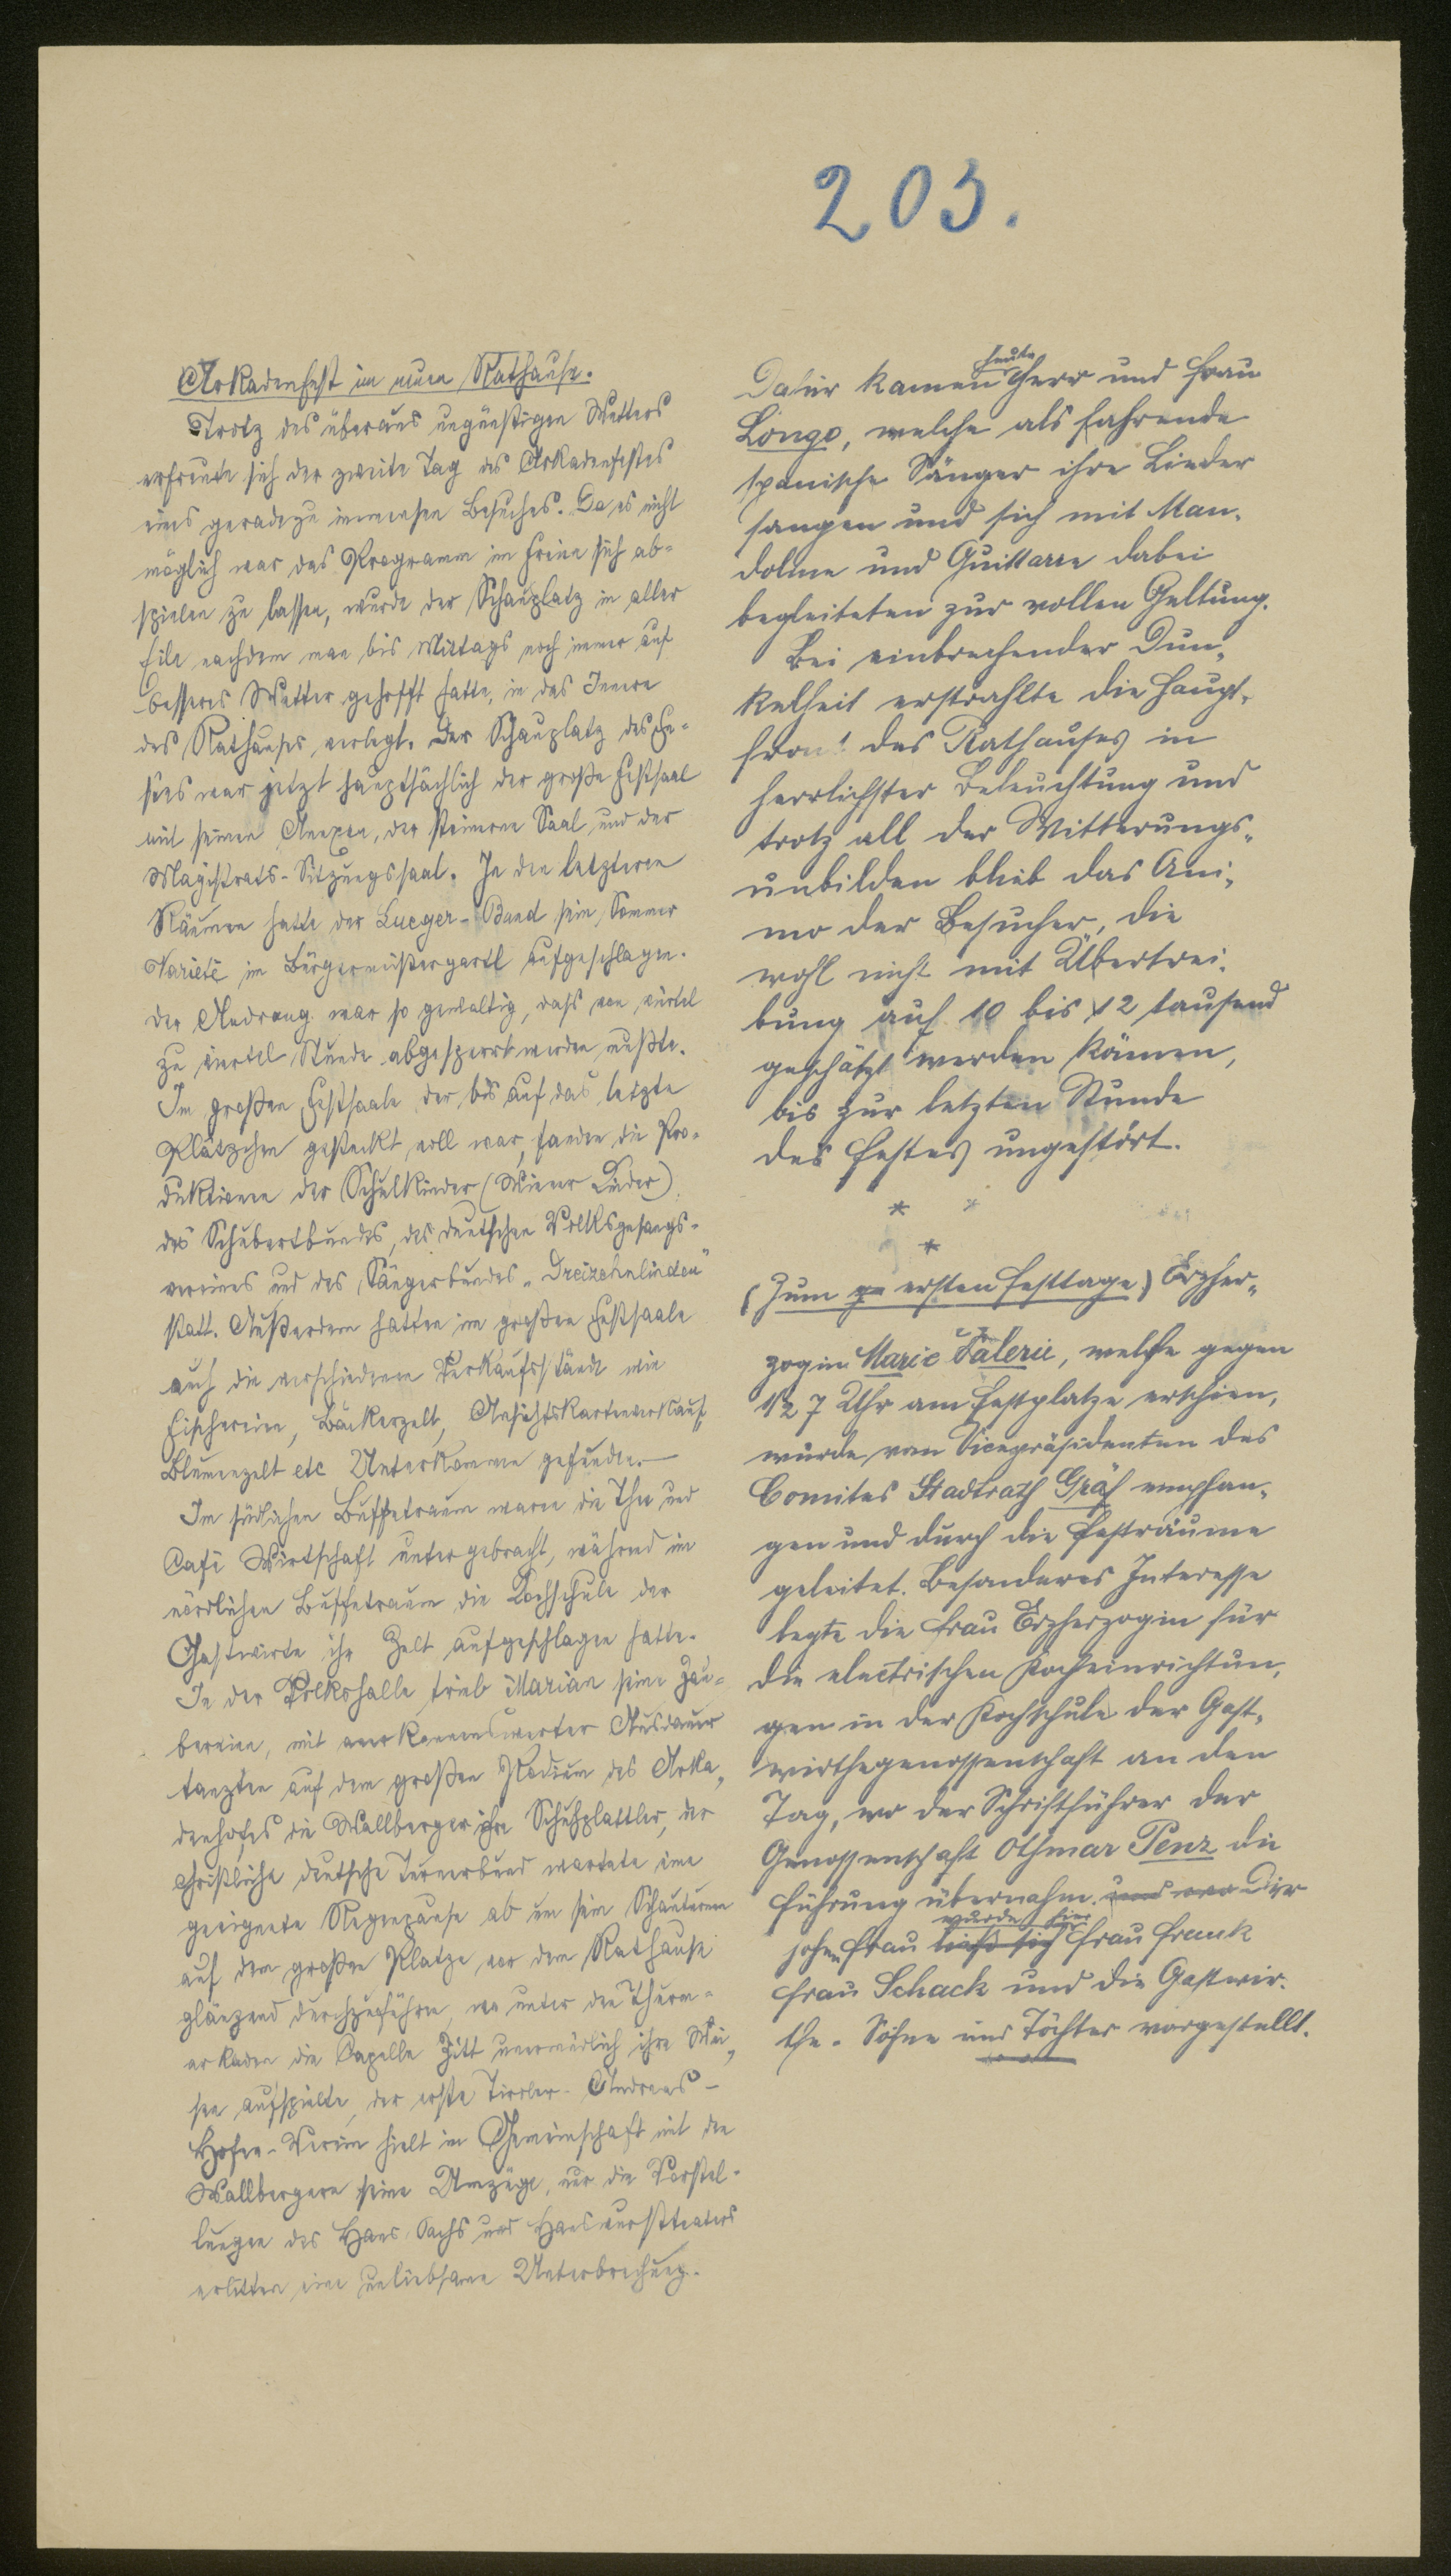 203.
Arkadenfest im neuen Rathause.
Trotz des überaus ungünstigen Wetters
erfreute sich der zweite Tag des Arkadenfestes
eines geradezu immensen Besuches. Da es nicht
möglich war das Programm im Freien sich ab-
spielen zu lassen, wurde der Schauplatz in aller
Eile nachdem man bis Mittags noch immer auf
besseres Wetter gehofft hatte, in das Innere
des Rathauses verlegt. Der Schauplatz des Fe-
stes war jetzt hauptsächlich der große Festsaal
mit seinen Annexen, der steinerne Saal und der
Magistrats-Sitzungssaal. In den letzteren
Räumen hatte der Lueger-Bund sein Sommer
Varieté im Bürgermeistergartl aufgeschlagen.
Der Andrang war so gewaltig, dass von viertel
zu viertel Stunde abgesperrt werden mußte.
Im großen Festsaale der bis auf das letzte
Plätzchen gesteckt voll war, fanden die Pro-
duktionen der Schulkinder (Wiener Lieder)
des Schubertbundes, des deutschen Volksgesangs-
vereines und des Sängerbundes „Dreizehnlinden"
statt. Außerdem hatten im großen Festsaale
auch die verschiedenen Verkaufsstände wie
Fischereien, Bäckerzelt, Ansichtskartenverkauf,
Blumenzelt etc Unterkommen gefunden.—
Im südlichen Buffetraum waren die Thee und
Café Wirtschaft untergebracht, während im
nördlichen Buffetraum die Kochschule der
Gastwirte ihr Zelt aufgeschlagen hatte.
In der Volkshalle trieb Marian seine Zau-
bereien, mit anerkennenswerter Ausdauer
tanzten auf dem großen Podium des Arka-
denhofes die Wallberger ihre Schuhplattler, der
christliche deutsche Turnerbund wartete eine
geeignete Regenpause ab um sein Schauturnen
auf dem großen Platze vor dem Rathause
glänzend durchzuführen, wo unter den Thurm-
arkaden die Capelle Zitt unermüdlich ihre Wei-
sen aufspielte, der erste Tiroler- Andreas-
Hofer-Verein hielt in Gemeinschaft mit den
Wallbergern seine Umzüge, nur die Vorstel-
lungen des Hans Sachs und Hanswursttheaters
erlitten eine unliebsame Unterbrechung.
Dafür kamen heute Herr und Frau
Longo, welche als fahrende
spanische Sänger ihre Lieder
sangen und sich mit Man-
doline und Guittarre dabei
begleiteten zur vollen Geltung.
Bei einbrechender Dun-
kelheit erstrahlte die Haupt-
front des Rathauses in
herrlichster Beleuchtung und
trotz all der Witterungs-
unbilden blieb das Ani-
mo der Besucher, die
wohl nicht mit Übertrei-
bung auf 10 bis 12 tausend
geschätzt werden können,
bis zur letzten Stunde
des Festes ungestört.
* *
*
(Zum ersten Festtage) Erzher-
zogin Marie Valerie, welche gegen
1/2 7 Uhr am Festplatze erschien,
wurde vom Vicepräsidenten des
Comites Stadtrath Gräf empfan-
gen und durch die Festräume
geleitet. Besonderes Interesse
legte die Frau Erzherzogin für
die electrischen Kocheinrichtun-
gen in der Kochschule der Gast-
wirthegenossenschaft an den
Tag, wo der Schriftführer der
Genossenschaft Othmar Penz die
Führung übernahm. und
wurde hier
hohen Frau ließ sich Frau Frank
Frau Schack und die Gastwir-
the-Söhne und Töchter vorgestellt.